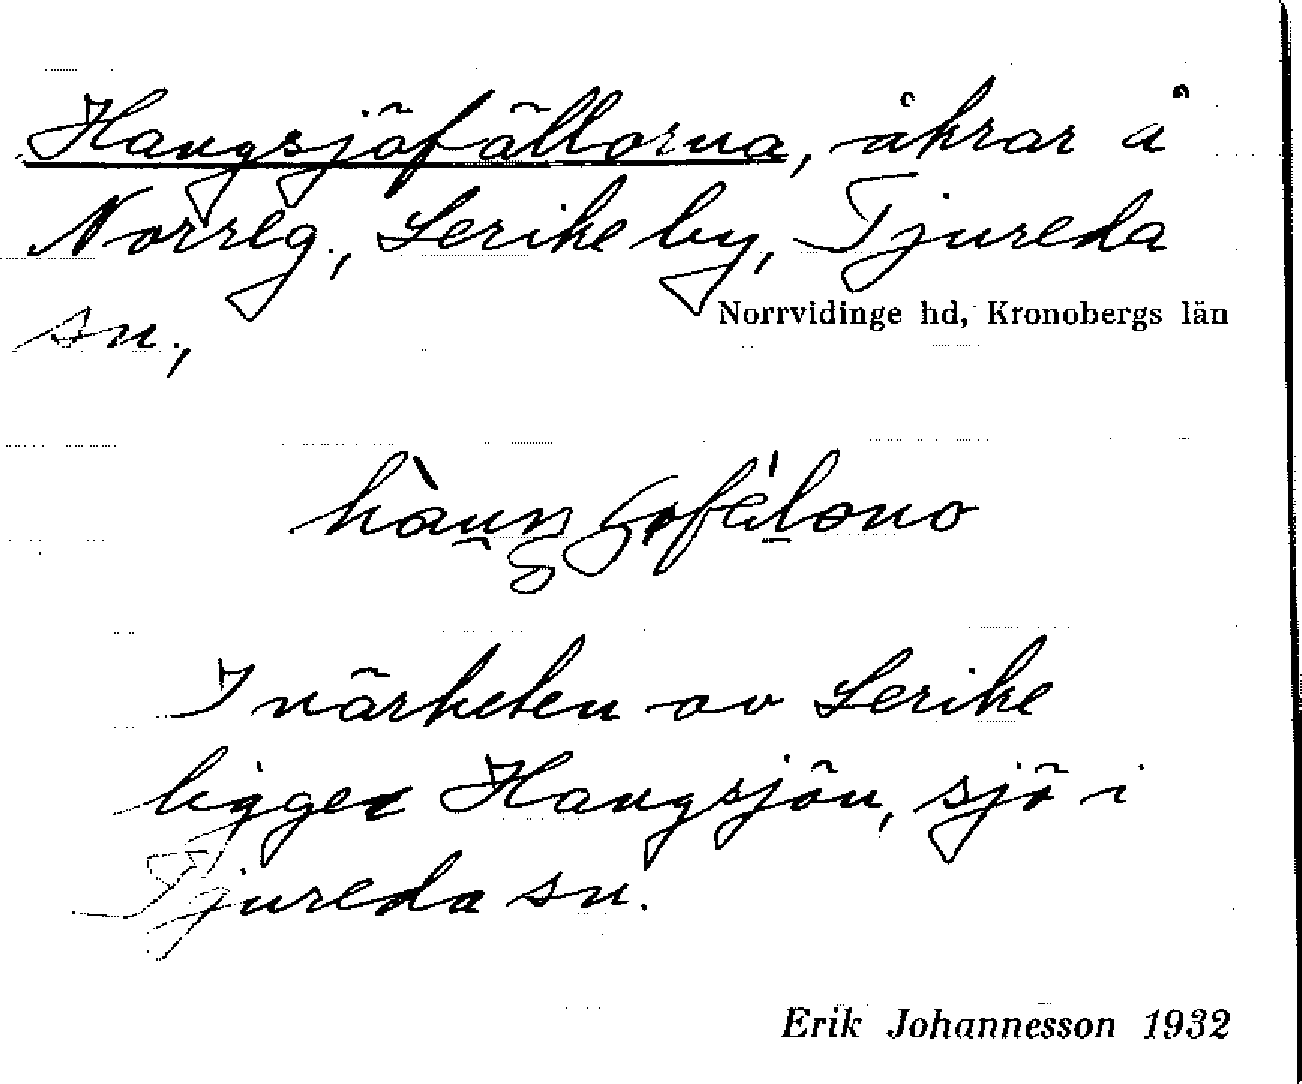 Haugsjöfällorna, åkrar å
Norreg., Lerike by, Tjureda
sn.,
Norrvidinge hd, Kronobergs län
I närheten av Lerike
ligger Haugsjön, sjö i
Tjureda sn.
Erik Johannesson 1932